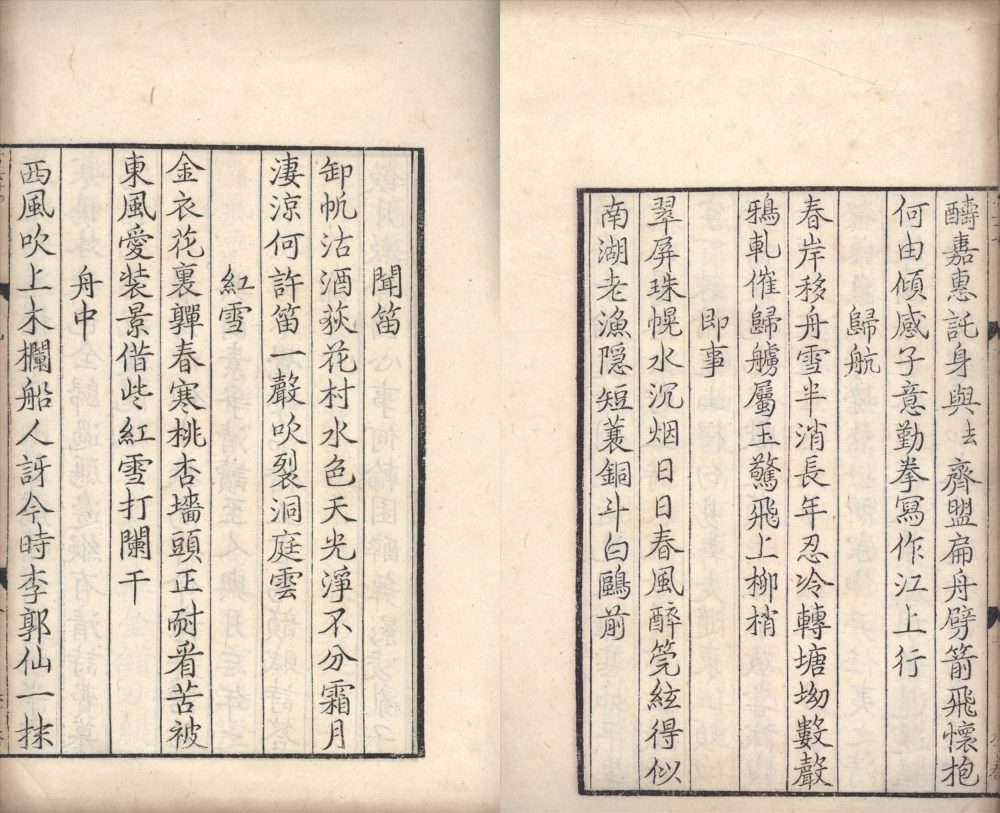 醻嘉惠託身與去齊盟扁舟劈箭飛懷抱
何由傾感子意勤拳寫作江上行
歸航
春岸移舟雪半消長年忍冷轉塘坳數聲
鴉軋催歸艣屬玉驚飛上柳梢
即事
翠屏珠幌水沉烟日日春風醉筦絃得似
南湖老漁隐短蓑銅斗白鷗前
聞笛
卸帆沽酒荻花村水色天光淨不分霜月
淒涼何許笛一聲吹裂洞庭雲
紅雪
金衣花裏嚲春寒桃杏墻頭正耐看苦被
東風愛装景借些紅雪打闌干
舟中
西風吹上木欄船人訝今時李郭仙一抹